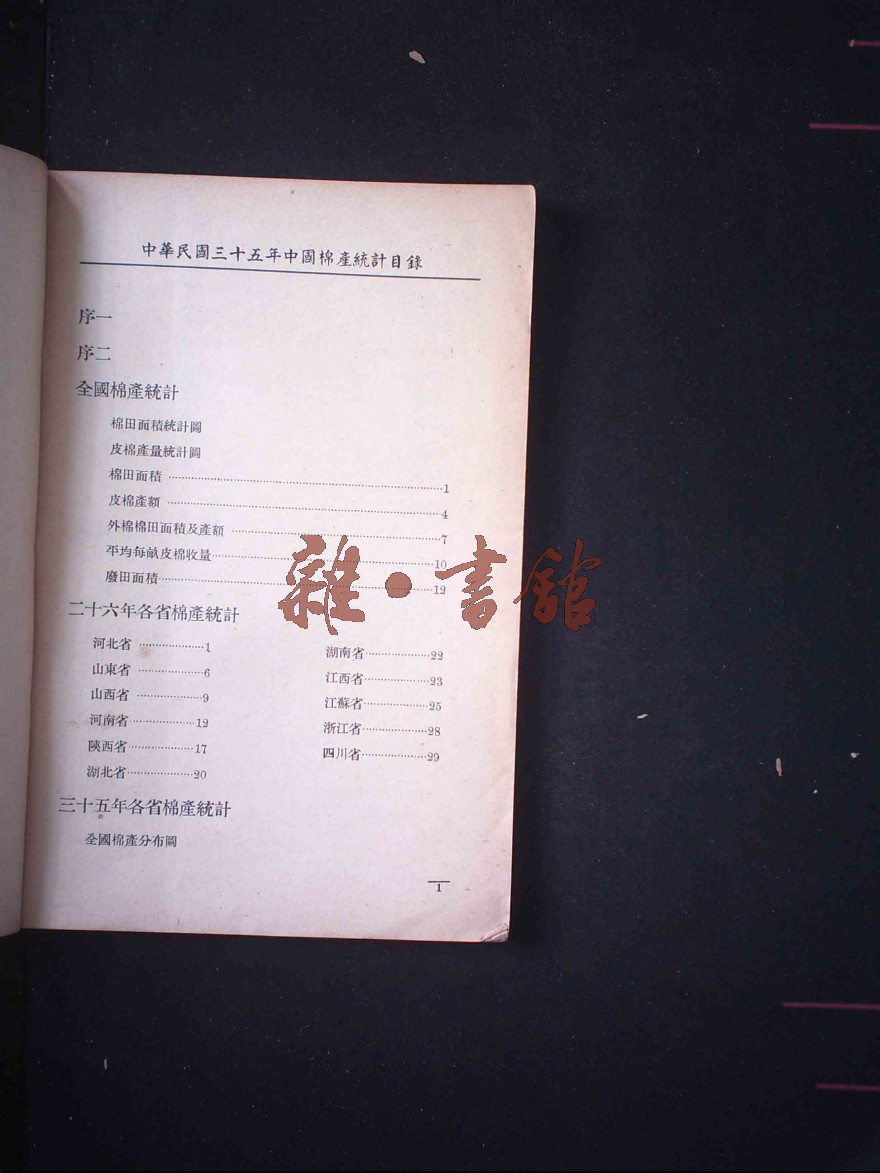 中華民國三十五年中國棉產統計目錄
序一
序二
全國棉產統計
棉田面積統計圖
皮棉產量統計圖
棉田面積……1
皮棉產額……4
外棉棉田面積及產額……7
平均每畝皮棉收量……10
廢田面積……12
二十六年各省棉產統計
河北省……1
山東省……6
山西省……9
河南省……12
陝西省……17
湖北省……20
湖南省……22
江西省……23
江蘇省……25
浙江省……28
四川省……29
三十五年各省棉產統計
全國棉產分布圖
1
雜·書館